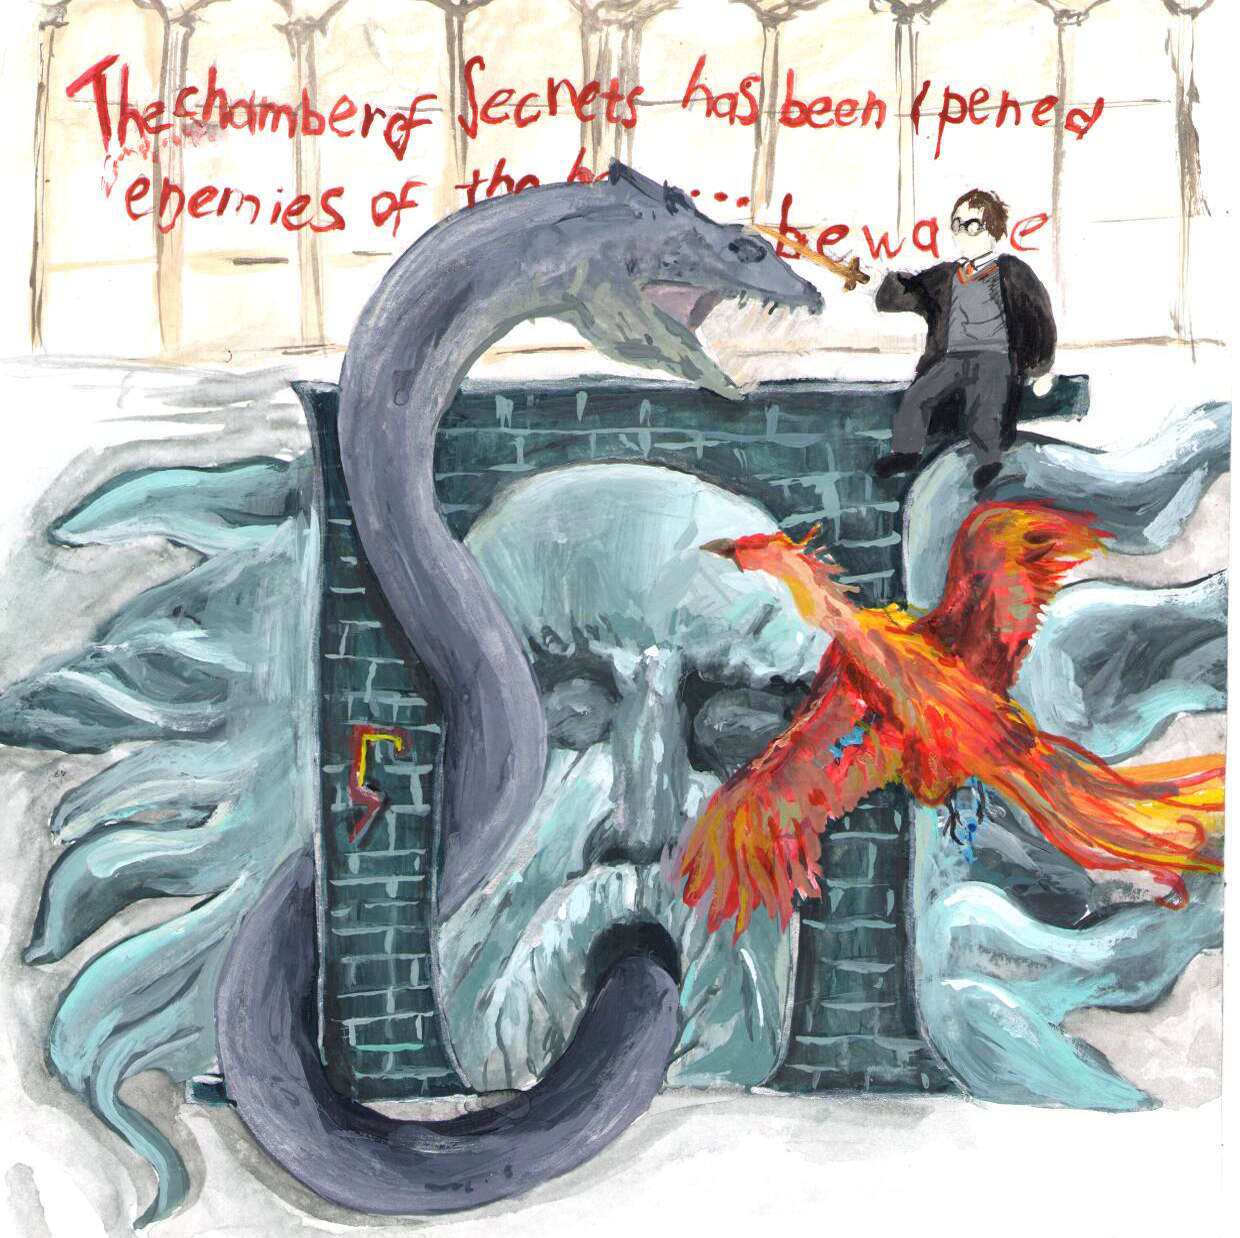 The chamber of Secrets has been Opened
enemies of the ... beware